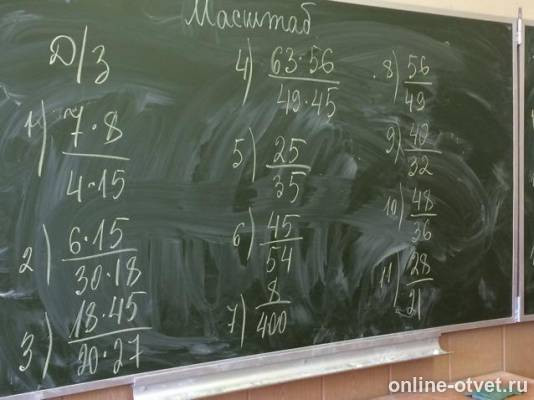 Масштаб
Д/З
1) 7·8/4·15
2) 6·15/30·18
3) 18·45/20·27
4) 63·56/49·45
5) 25/35
6) 45/54
7) 8/400
8) 56/49
9) 40/32
10) 48/36
11) 28/21
online-otvet.ru